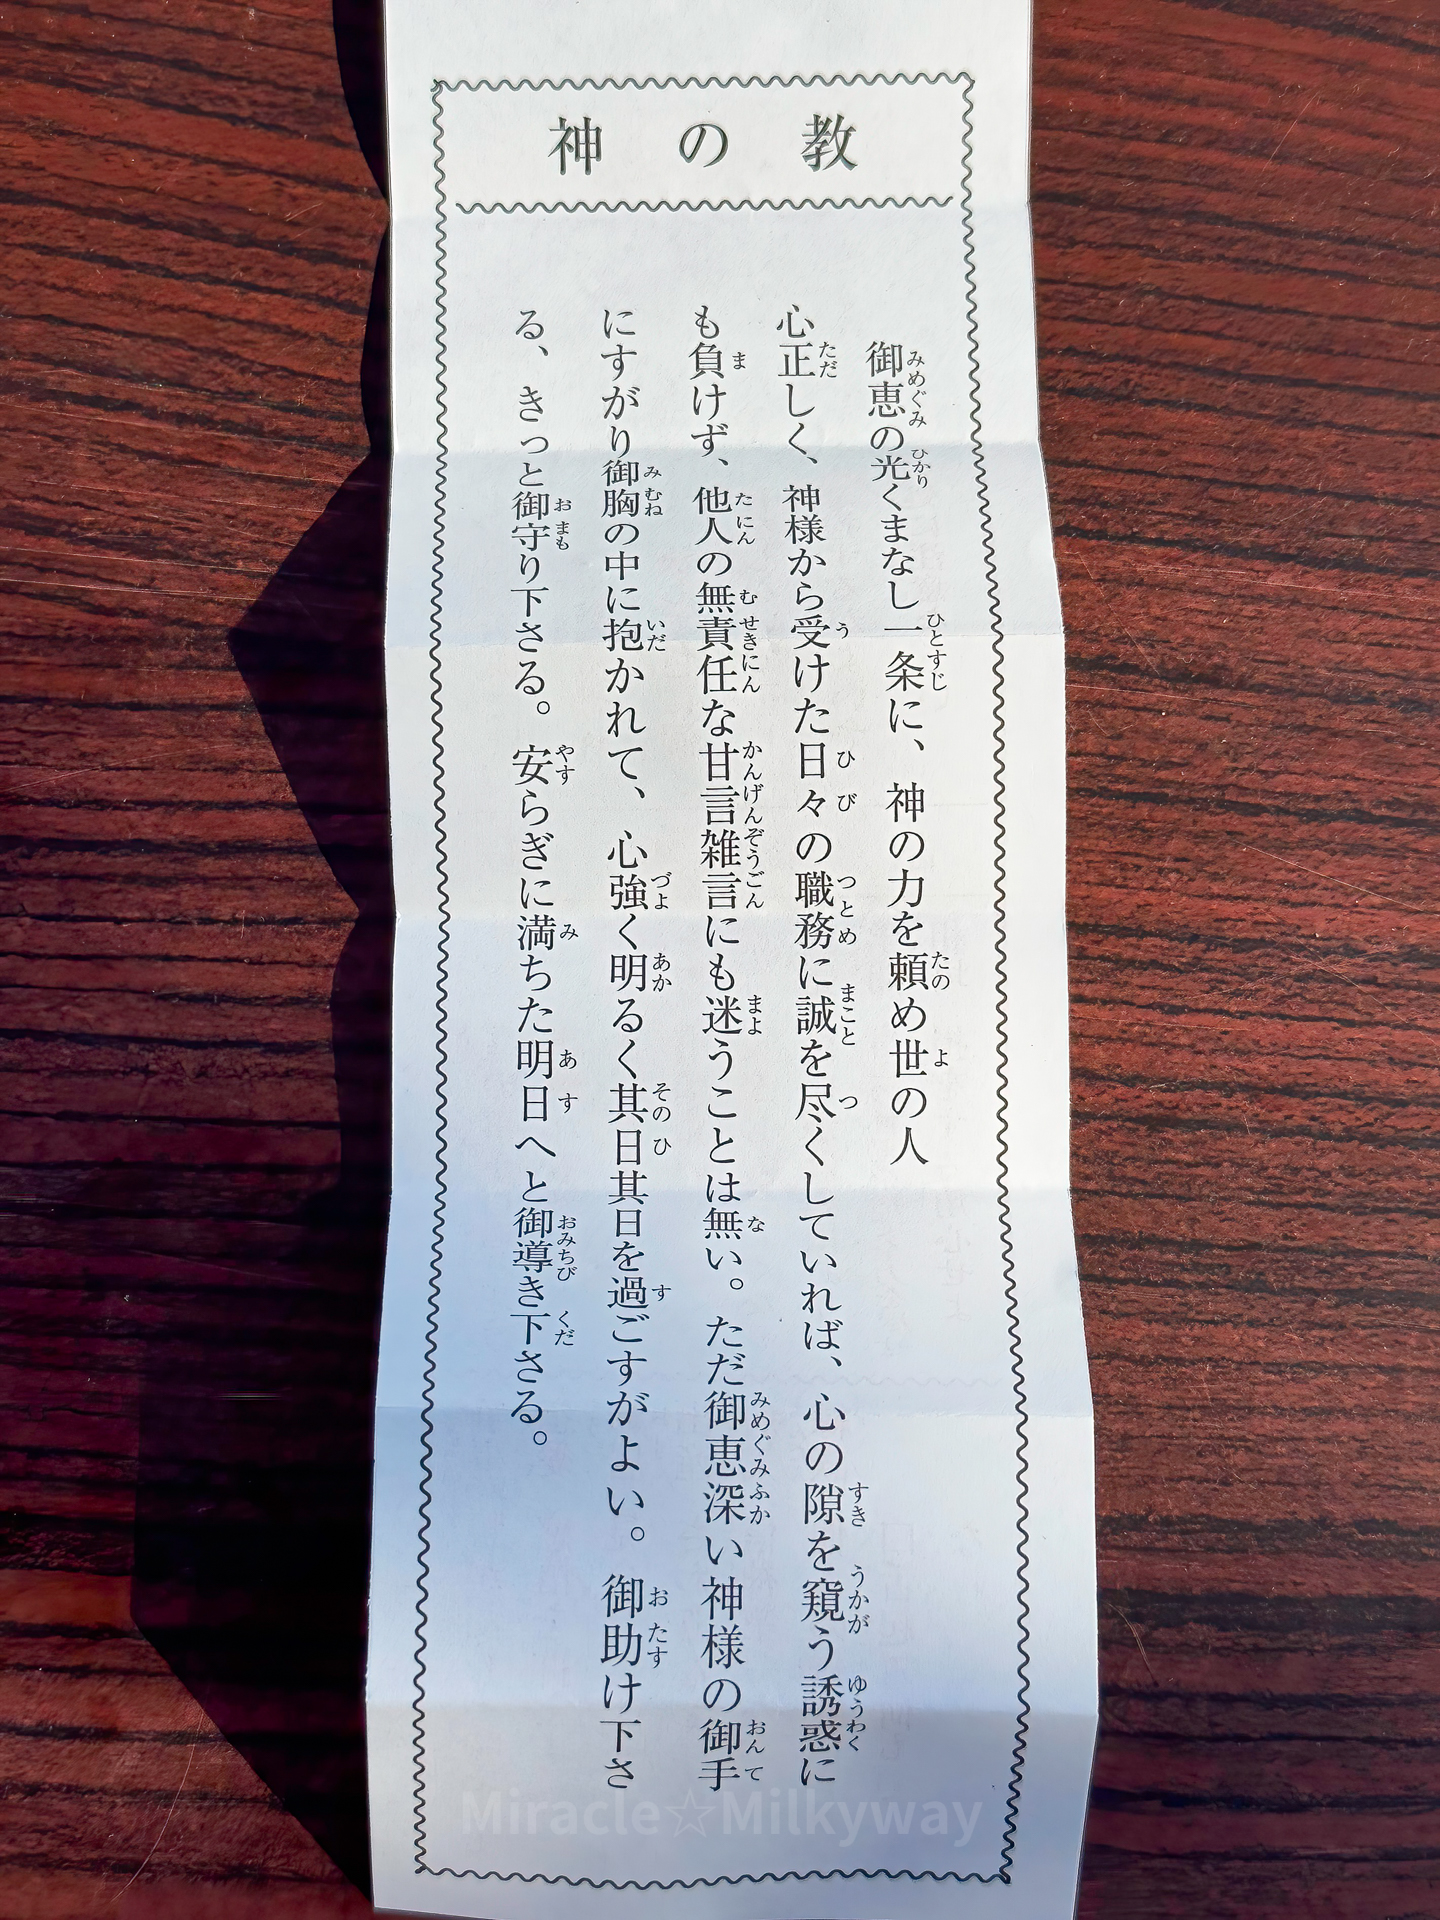 神の教
御恵の光くまなし一条に、神の力を頼め世の人
心正しく、神様から受けた日々の職務に誠を尽くしていれば、心の隙を窺う誘惑に
も負けず、他人の無責任な甘言雑言にも迷うことは無い。ただ御恵深い神様の御手
にすがり御胸の中に抱かれて、心強く明るく其日其日を過ごすがよい。御助け下さ
る、きっと御守り下さる。安らぎに満ちた明日へと御導き下さる。
Miracle☆Milkyway